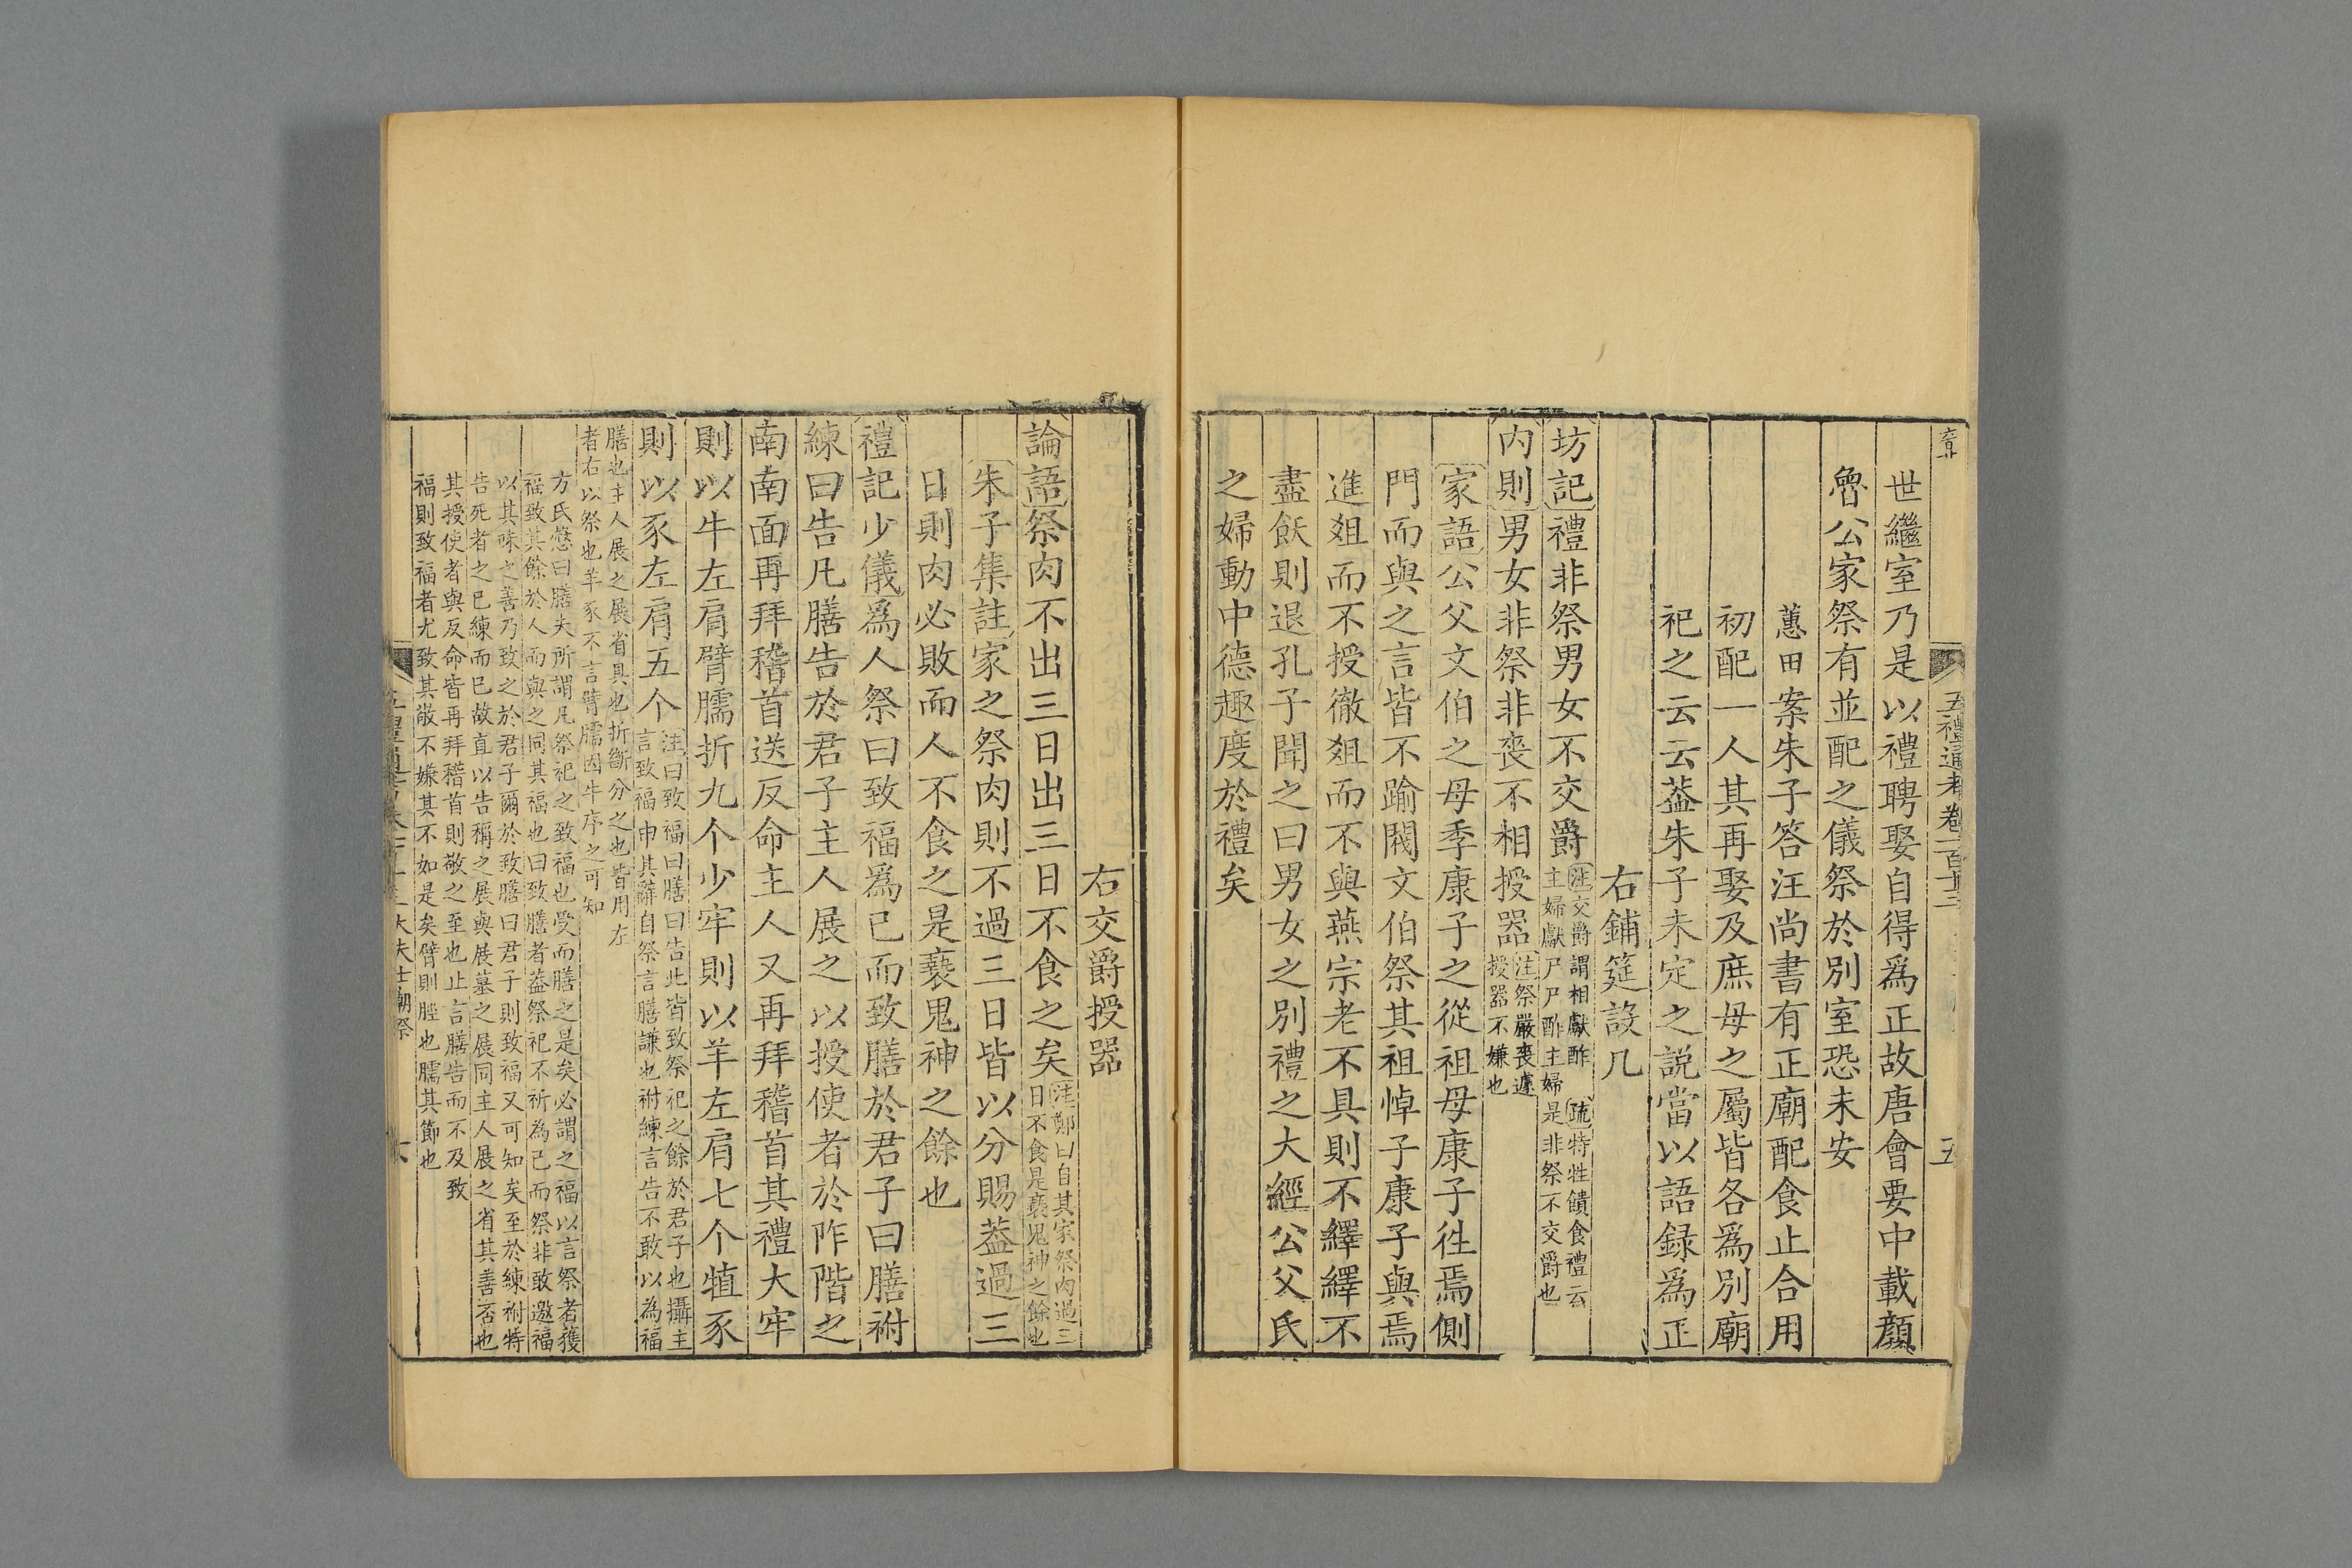 五禮通考卷一百十三
五
世繼室乃是以禮聘娶自得爲正故唐會要中載顔
魯公家祭有並配之儀祭於別室恐未安
蕙田案朱子答汪尚書有正廟配食止合用
初配一人其再娶及庶母之屬皆各爲別廟
祀之云云葢朱子未定之説當以語録爲正
右鋪筵設几
坊記禮非祭男女不交爵
注交爵謂相獻酢
主婦獻尸尸酢主婦
疏特牲饋食禮云
是非祭不交爵也
內則男女非祭非喪不相授器
注祭嚴喪遽
授器不嫌也
家語公父文伯之母季康子之從祖母康子徃焉側
門而與之言皆不踰閾文伯祭其祖悼子康子與焉
進俎而不授徹俎而不與燕宗老不具則不繹繹不
盡飫則退孔子聞之曰男女之別禮之大經公父氏
之婦動中德趣度於禮矣
右交爵授器
論語祭肉不出三日出三日不食之矣
注鄭曰自其家祭肉過三
日不食是褻鬼神之餘也
朱子集註家之祭肉則不過三日皆以分賜葢過三
日則肉必敗而人不食之是褻鬼神之餘也
禮記少儀爲人祭曰致福爲己而致膳於君子曰膳祔
練曰告凡膳告於君子主人展之以授使者於阼階之
南南面再拜稽首送反命主人又再拜稽首其禮大牢
則以牛左肩臂臑折九个少牢則以羊左肩七个犆豕
則以豕左肩五个
注曰致福曰膳曰告此皆致祭祀之餘於君子也攝主
言致福申其辭自祭言膳謙也祔練言告不敢以為福
膳也主人展之展省具也折斷分之也皆用左
者右以祭也羊豕不言臂臑因牛序之可知
方氏慤曰膳夫所謂凡祭祀之致福也受而膳之是矣必謂之福以言祭者獲
福致其餘於人而與之同其福也曰致膳者葢祭祀不祈為己而祭非敢邀福
以其味之善乃致之於君子爾於致膳曰君子則致福又可知矣至於練祔特
告死者之已練而已故直以告稱之展與展墓之展同主人展之省其善否也
其授使者與反命皆再拜稽首則敬之至也止言膳告而不及致
福則致福者尤致其敬不嫌其不如是矣臂則脛也臑其節也
大夫士廟祭
六